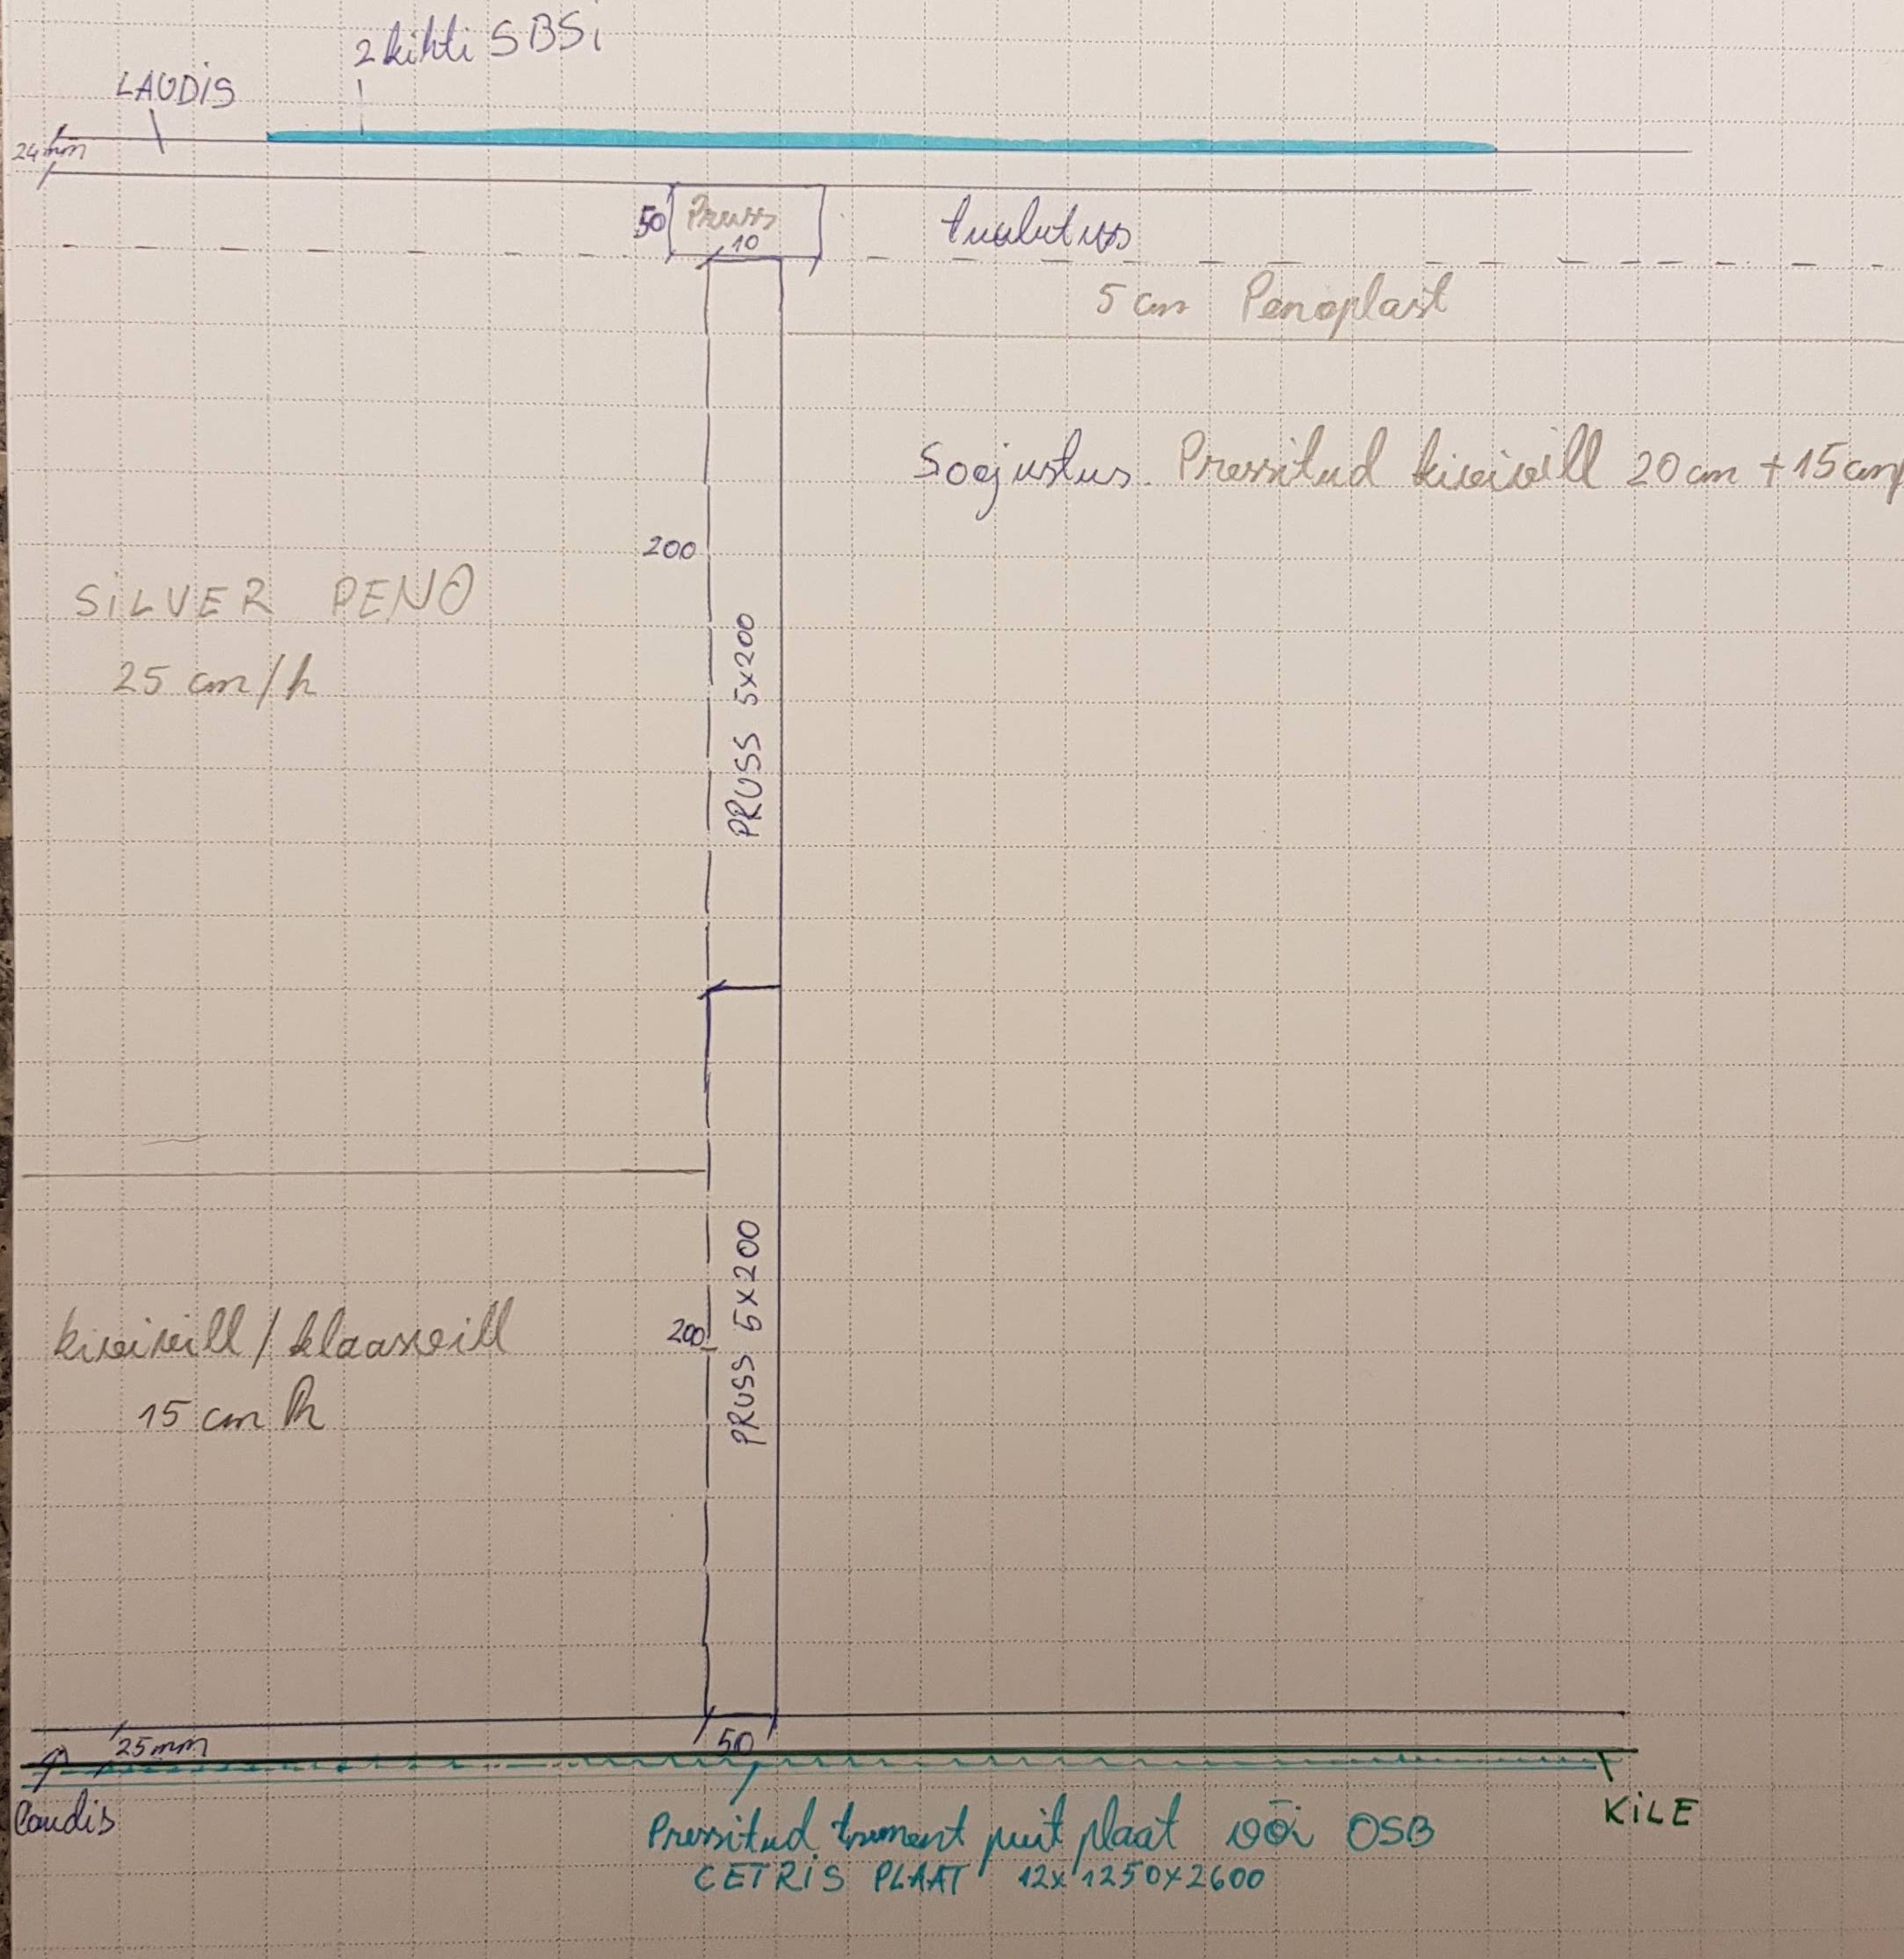 2 kihti SBSi
LAUDIS
24 mm
50
Pruss
10
tuulutus
5 cm Penoplast
Soojustus. Pressitud kivivill 20 cm + 15 cm
200
SILVER PENO
25 cm/h
PRUSS 5x200
kivivill / klaasvill
15 cm h
200
PRUSS 5x200
25 mm
50
Laudis
KILE
Pressitud tsement puit plaat või OSB
CETRIS PLAAT 12x1250x2600